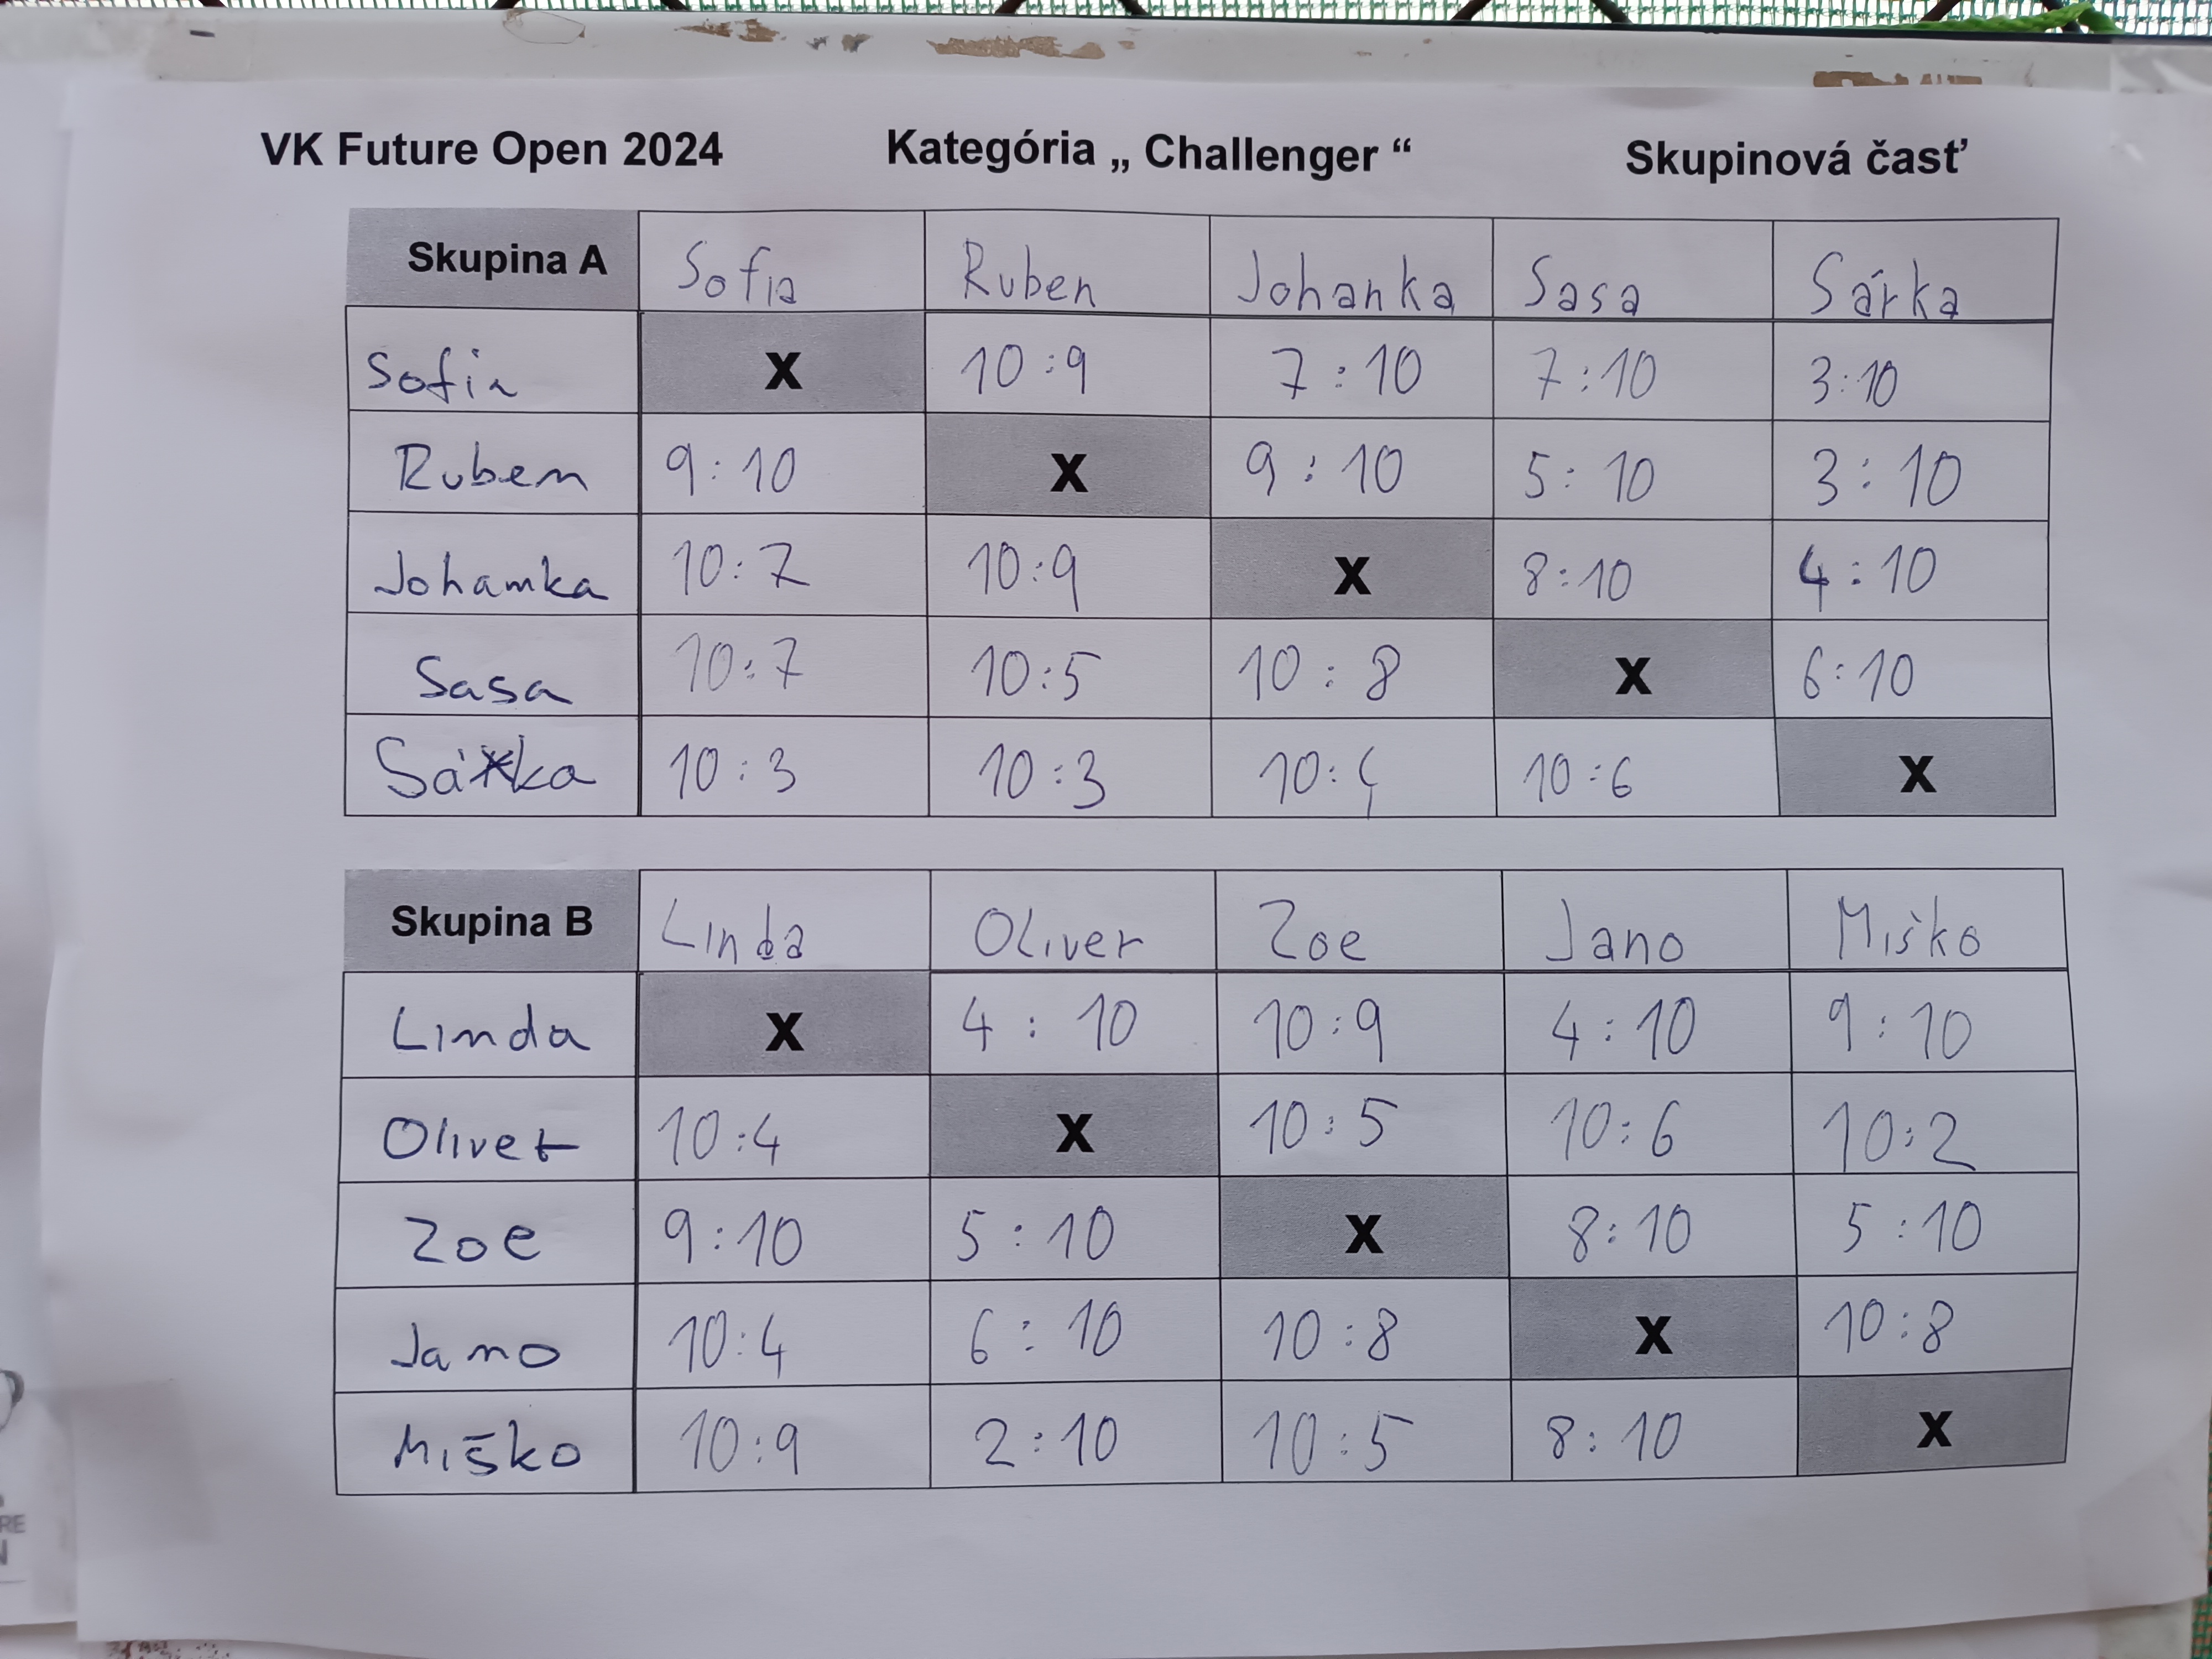 VK Future Open 2024 Kategória „ Challenger “ Skupinová časť
Skupina A Sofia Ruben Johanka Sasa Sárka
Sofia X 10:9 7:10 7:10 3:10
Ruben 9:10 X 9:10 5:10 3:10
Johanka 10:7 10:9 X 8:10 4:10
Sasa 10:7 10:5 10:8 X 6:10
Sárka 10:3 10:3 10:4 10:6 X
Skupina B Linda Oliver Zoe Jano Miško
Linda X 4:10 10:9 4:10 9:10
Oliver 10:4 X 10:5 10:6 10:2
Zoe 9:10 5:10 X 8:10 5:10
Jano 10:4 6:10 10:8 X 10:8
Miško 10:9 2:10 10:5 8:10 X
RE